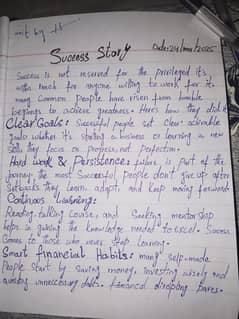 Success Story
Date: 24/mar/2025
Success is not reserved for the privileged it's
with reach for anyone willing to work for it.
many Common people have risen from humble
beginings to achieve greatness. Here's how they did it
Clear Goals: Successful people set clear achivable
goals whether its starting a business or learning a new
skills they focus on progress, not perfection.
Hard work & Persistence: failure is part of the
journey. the most Successful people don't give up after
Setbacks they learn, adapt, and keep moving forward
Continous Learning:
Reading, talking Course, and Seeking mentorship
helps in gaining the knowledge needed to excel. Success
Comes to those who never Stop learning.
Smart financial Habits: many self-made
People start by saving money, investing wisely and
avoiding unnecessary debts. financial